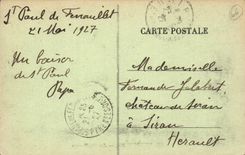 St Paul de Fenouillet
21 Mai 1927
CARTE POSTALE
Un baiser
de St Paul
Papa
Mademoiselle
Fernande Jalabert
château de Siran
à Siran
Hérault